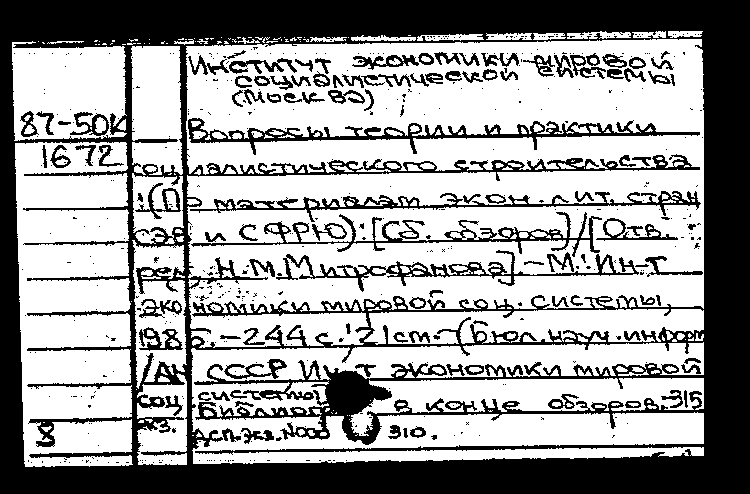 Институт экономики мировой
социалистической системы
(Москва)
87-50К Вопросы теории и практики
1672 социалистического строительства
:(По материалам экон. лит. стран
СЭВ и СФРЮ):[Сб. обзоров]/[Отв.
ред. Н.М.Митрофанова].-М.:Ин-т
экономики мировой соц. системы,
1985.-244 с.;21см.-(Бюл.науч.информ
/АН СССР, Ин-т экономики мировой
соц. системы
Библиогр. в конце обзоров.-315
8 экз. Дсп.Экз.N000 310.